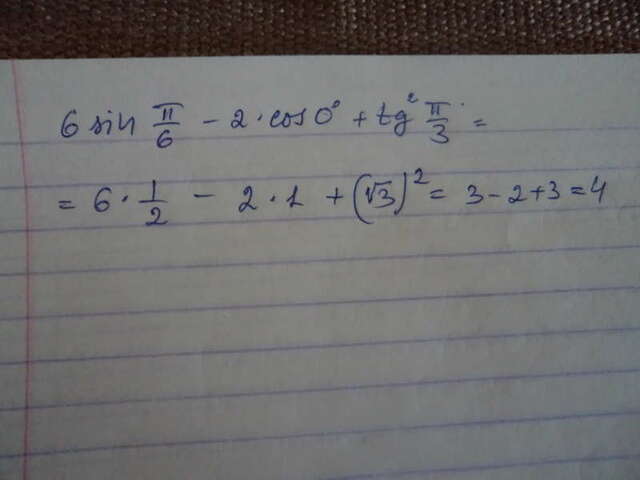 6 sin π/6 - 2 · cos 0° + tg² π/3 =
= 6 · 1/2 - 2 · 1 + (√3)² = 3 - 2 + 3 = 4